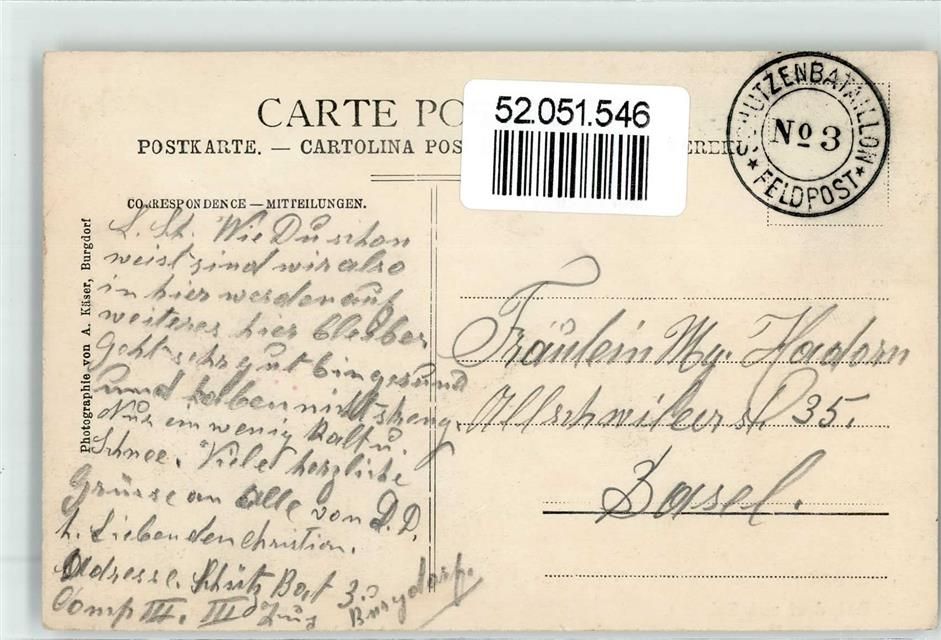 CARTE PO
52.051.546
POSTKARTE. — CARTOLINA POS
SCHUTZENBATAILLON
No 3
FELDPOST
CORRESPONDENCE — MITTEILUNGEN.
Photographie von A. Käser, Burgdorf
L. Sch. Wie Du schon
weist sind wir also
in hier werden auf
weiteres hier bleiben
Geht sehr gut bin gesund
und haben nicht streng.
Nur ein wenig kalt u.
Schnee. Viele herzliche
Grüsse an alle von D. D.
h. Liebenden Christian.
Adresse. Schütz Bat 3.
Comp III. III Zug Burgdorf.
Fräulein My. Hadorn
Allschwilerst. 35.
Basel.